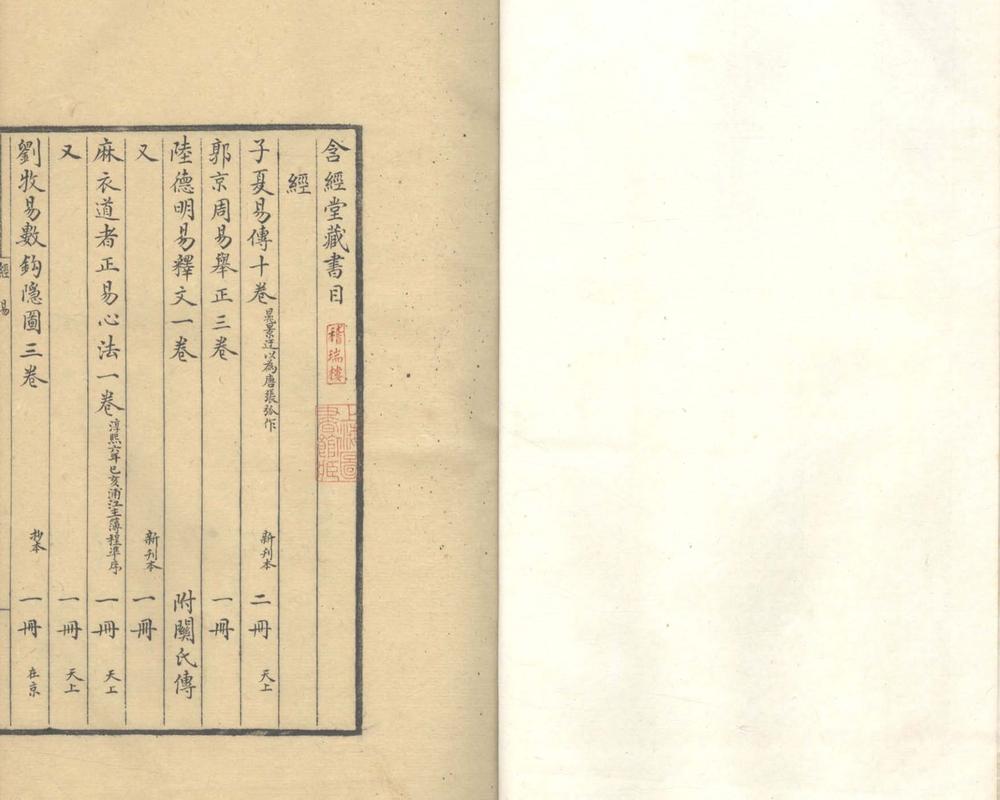 含經堂藏書目
稽瑞樓
經
子夏易傳十卷 晁景迂以為唐張弧作 新刊本 二冊 天上
郭京周易舉正三卷 一冊
陸德明易釋文一卷 附關氏傳
又 新刊本 一冊
麻衣道者正易心法一卷 淳熙六年巳亥浦江主薄程準序 一冊 天上
又 一冊 天上
劉牧易數鈎隱圖三卷 抄本 一冊 在京
經 易